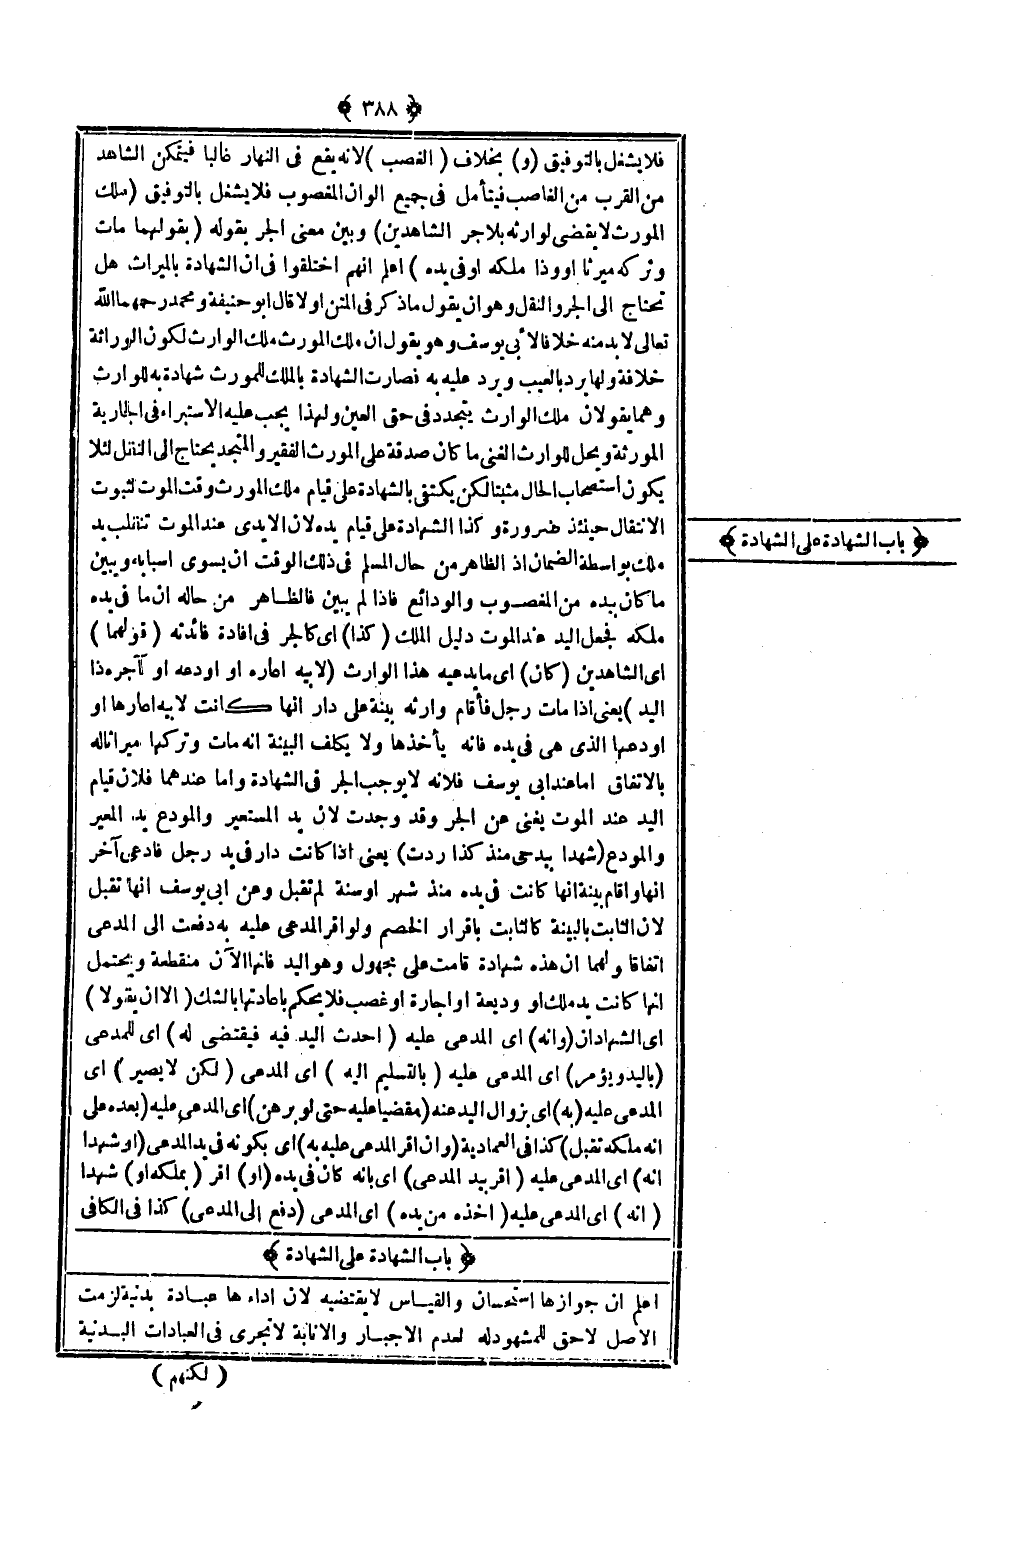 ﴿ ٣٨٨ ﴾
فلا يشغل بالتوفيق (و) بخلاف (الغصب) لانه يقع فى النهار غالبا فيتمكن الشاهد
من القرب من الغاصب فيتأمل فى جميع الوان المغصوب فلا يشغل بالتوفيق (ملك
المورث لا يقضى لوارثه بلا جر الشاهدين) وبين معنى الجر بقوله (بقولهما مات
وتركه ميرثا او وذا ملكه او فى يده) اعلم انهم اختلفوا فى ان الشهادة بالميراث هل
تحتاج الى الجر والنقل وهو ان يقول ما ذكر فى المتن اولا قال ابو حنيفة ومحمد رحمهما الله
تعالى لا بد منه خلافا لأبى يوسف وهو يقول ان ملك المورث ملك الوارث لكون الوراثة
خلافة ولها يرد بالعيب ويرد عليه به فصارت الشهادة بالملك للمورث شهادة به للوارث
وهما يقولان ملك الوارث يتجدد فى حق العين ولهذا يجب عليه الاستبراء فى الجارية
المورثة ويحل للوارث الغنى ما كان صدقة على المورث الفقير والمتجدد يحتاج الى النقل لئلا
يكون استصحاب الحال مثبتا لكن يكتفى بالشهادة على قيام ملك المورث وقت الموت لثبوت
الانتقال حينئذ ضرورة وكذا الشهادة على قيام يده لان الايدى عند الموت تنقلب يد
ملك بواسطة الضمان اذ الظاهر من حال المسلم فى ذلك الوقت ان يسوى اسبابه ويبين
ما كان بيده من المغصوب والودائع فاذا لم يبين فالظاهر من حاله ان ما فى يده
ملكه فجعل اليد عند الموت دليل الملك (كذا) اى كالجر فى افادة فائدته (قولهما)
اى الشاهدين (كان) اى ما يدعيه هذا الوارث (لابيه اعاره او اودعه او آجره ذا
اليد) يعنى اذا مات رجل فأقام وارثه بينة على دار انها كانت لابيه اعارها او
اودعها الذى هى فى يده فانه يأخذها ولا يكلف البينة انه مات وتركها ميراثا له
بالاتفاق اما عند ابى يوسف فلانه لا يوجب الجر فى الشهادة واما عندهما فلان قيام
اليد عند الموت يغنى عن الجر وقد وجدت لان يد المستعير والمودع يد المعير
والمودع (شهدا بيد حى منذ كذا ردت) يعنى اذا كانت دار فى يد رجل فادعى آخر
انها واقام بينة انها كانت فى يده منذ شهر او سنة لم تقبل وعن ابى يوسف انها تقبل
لان الثابت بالبينة كالثابت باقرار الخصم ولو اقر المدعى عليه به دفعت الى المدعى
اتفاقا ولهما ان هذه شهادة قامت على مجهول وهو اليد فانها الآن منقطعة ويحتمل
انها كانت يد ملك او وديعة او اجارة او غصب فلا يحكم باعادتها بالشك (الا ان يقولا)
اى الشهادان (وانه) اى المدعى عليه (احدث اليد فيه فيقتضى له) اى للمدعى
(باليد ويؤمر) اى المدعى عليه (بالتسليم اليه) اى المدعى (لكن لا يصير) اى
المدعى عليه (به) اى بزوال اليد عنه (مقضيا عليه حتى لو برهن) اى المدعى عليه (بعده على
انه ملكه تقبل) كذا فى العمادية (وان اقر المدعى عليه به) اى بكونه فى يد المدعى (او شهدا
انه) اى المدعى عليه (اقر بيد المدعى) اى بانه كان فى يده (او) اقر (بملكه او) شهدا
(انه) اى المدعى عليه (اخذه من يده) اى المدعى (دفع الى المدعى) كذا فى الكافى
﴿ باب الشهادة على الشهادة ﴾
﴿ باب الشهادة على الشهادة ﴾
اعلم ان جوازها استحسان والقياس لا يقتضيه لان اداءها عبادة بدنية لزمت
الاصل لا حق للمشهود له لعدم الاجبار والانابة لا تجرى فى العبادات البدنية
(لكنهم)